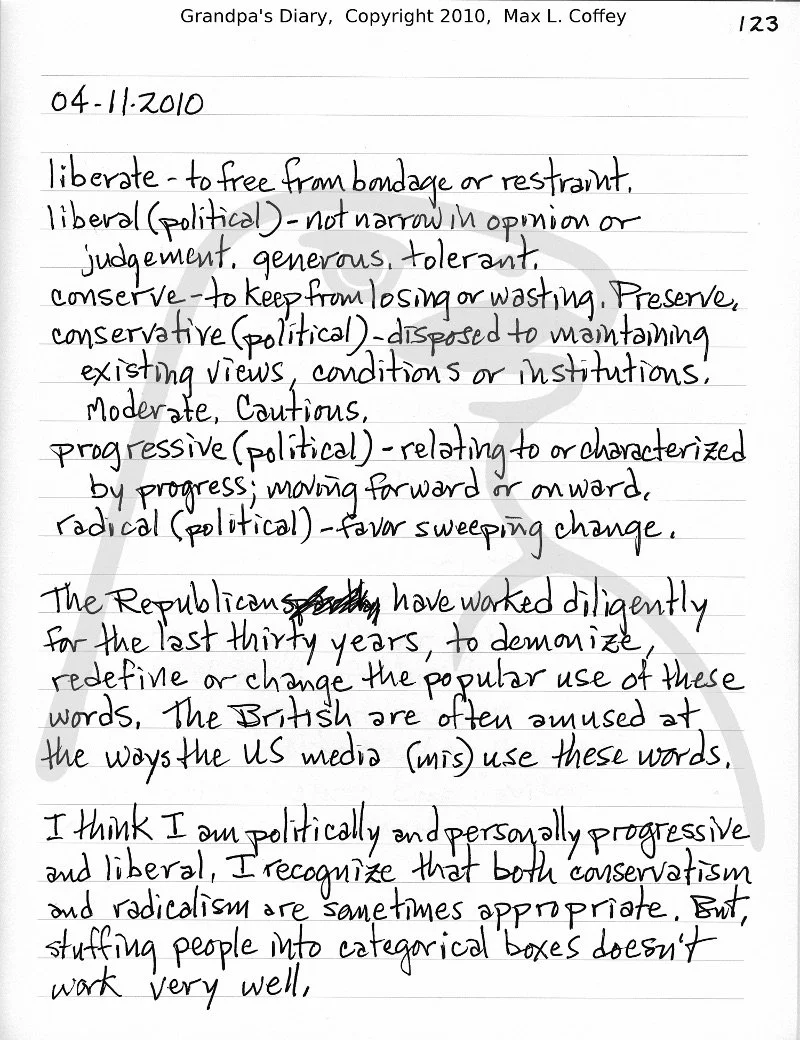 Grandpa's Diary, Copyright 2010, Max L. Coffey
123
04-11-2010
liberate - to free from bondage or restraint.
liberal (political) - not narrow in opinion or
judgement. generous. tolerant.
conserve - to keep from losing or wasting. Preserve.
conservative (political) - disposed to maintaining
existing views, conditions or institutions.
Moderate. Cautious.
progressive (political) - relating to or characterized
by progress; moving forward or onward.
radical (political) - favor sweeping change.
The Republicans have worked diligently
for the last thirty years, to demonize,
redefine or change the popular use of these
words. The British are often amused at
the ways the US media (mis) use these words.
I think I am politically and personally progressive
and liberal. I recognize that both conservatism
and radicalism are sometimes appropriate. But,
stuffing people into categorical boxes doesn't
work very well.